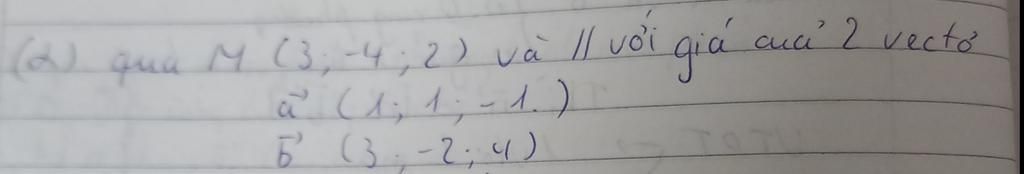 (α) qua M (3; -4; 2) và // với giá của 2 vectơ
a⃗ (1; 1; -1.)
b⃗ (3; -2; 4)